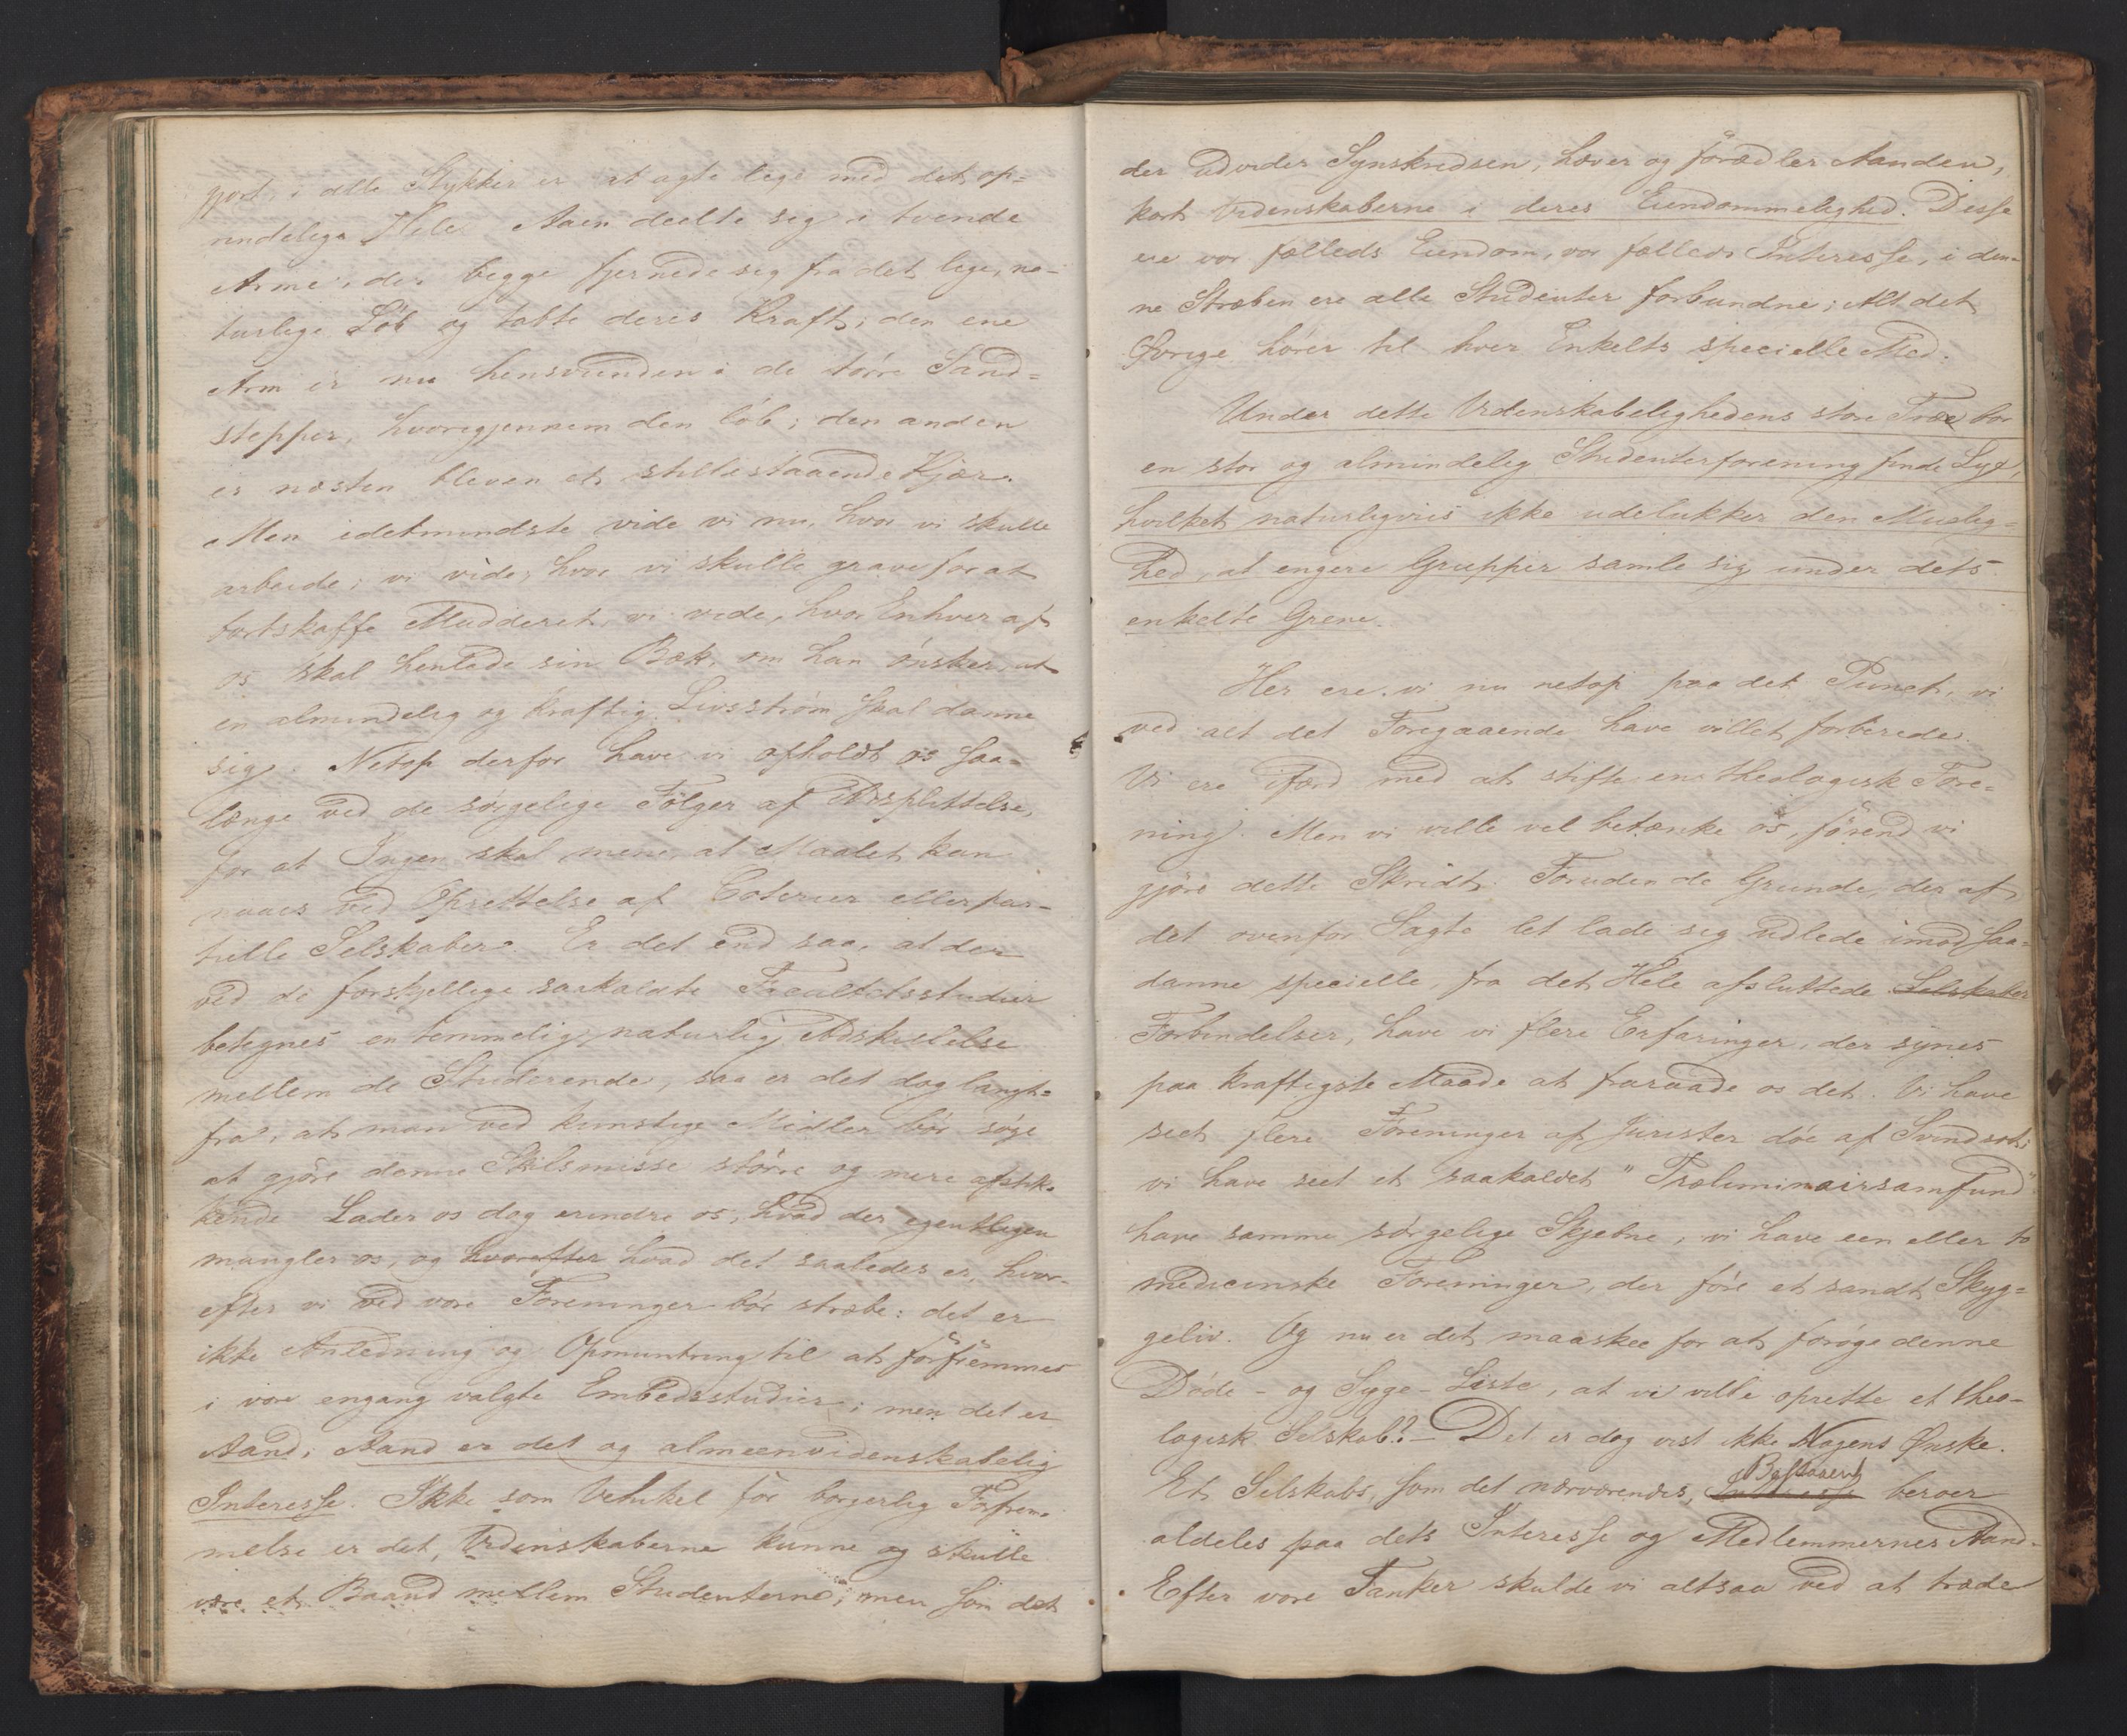 gjort, i alle Stykker er at agte lige med det op=
rindelige Hele. Aaen deelte sig i tvende
Arme, der begge fjernede sig fra det lige, na-
turlige Löb og tabte deres Kraft; den ene
Arm er nu hensvunden i de törre Sand=
stepper, hvorigjennem den löb; den anden
er næsten bleven et stillestaaende Kjær.
Men idetmindste vide vi nu, hvor vi skulle
arbeide; vi vide, hvor vi skulle grave for at
bortskaffe Mudderet, vi vide, hvor Enhver af
os skal henlede sin Bæk, om han önsker, at
en almindelig og kraftig Livsström skal danne
sig. Netop derfor have vi opholdt os saa=
længe ved de sörgelige Fölger af Adsplittelse,
for at Ingen skal mene, at Maalet kan
naaes ved Oprettelse af Coterier eller par-
tielle Selskaber. Er det end saa, at der
ved de forskjellige saakaldte Facultetsstudier
betegnes en temmelig naturlig Adskillelse
mellem de Studerende, saa er det dog langt=
fra, at man ved kunstige Midler bör söge
at gjöre denne Skilsmisse större og mere afstik-
kende. Lader os dog erindre os, hvad der egentligen
mangler os, og hvorefter hvad det saaledes er, hvor-
efter vi ved vore Foreninger bör stræbe: det er
ikke Anledning og Opmuntring til at forfremmes
i vore engang valgte Embedsstudier; men det er
Aand, Aand er det og almeenvidenskabelig
Interesse. Ikke som Vehikel for borgerlig Forfrem-
melse er det, Videnskaberne kunne og skulle
være et Baand mellem Studenterne; men som det
der udvider Synskredsen, hæver og forædler Aanden,
kort Videnskaberne i deres Eiendommelighed. Disse
ere vor fælleds Eiendom, vor fælleds Interesse, i den-
ne Stræben ere alle Studenter forbundne; Alt det
Øvrige hörer til hver Enkelts specielle Med.
Under dette Videnskabelighedens store Træ bör
en stor og almindelig Studenterforening finde Lye,
hvilket naturligviis ikke udelukker den Muelig=
hed, at engere Grupper samle sig under dets
enkelte Grene.
Her ere vi nu netop paa det Punct, vi
ved alt det Foregaaende have villet forberede.
Vi ere ifærd med at stifte en theologisk Fore-
ning. Men vi ville vel betænke os, förend vi
gjöre dette Skridt. Foruden de Grunde, der af
det ovenfor Sagte let lade sig udlede imod saa=
danne specielle, fra det Hele afsluttede Selskaber
Forbindelser, have vi flere Erfaringer, der synes
paa kraftigste Maade at fraraade os det. Vi have
seet flere Foreninger af Jurister döe af Svindsot;
vi have seet et saakaldet "Præliminairsamfund"
have samme sörgelige Skjebne, vi have een eller to
medicinske Foreninger, der före et sandt Skyg=
geliv. Og nu er det maaskee for at foröge denne
Döde- og Syge-Liste, at vi ville oprette et theo-
logisk Selskab? – Det er dog vist ikke Nogens Ønske.
Et Selskabs, som det nærværendes, Bestaaen beroer
aldeles paa dets Interesse og Medlemmernes Aand.
Efter vore Tanker skulde vi altsaa ved at træde